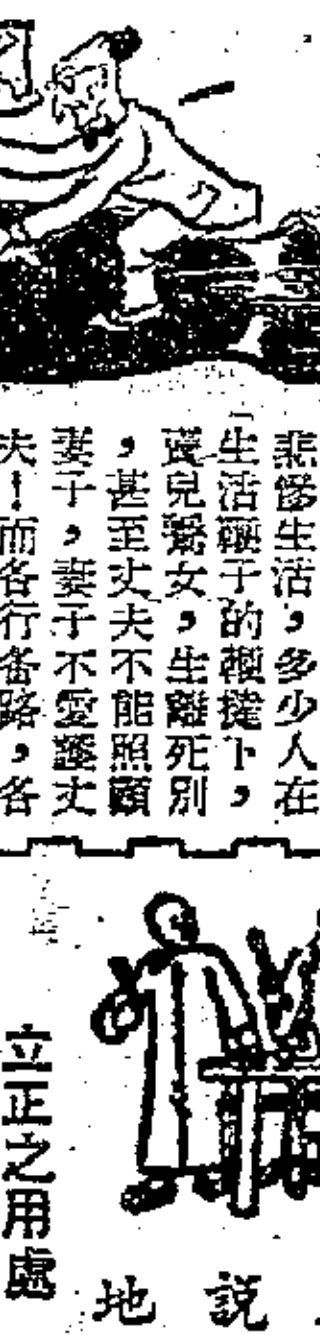 悲慘生活，多少人在
「生活鞭子的鞭撻下，
賣兒鬻女，生離死別
，甚至丈夫不能照顧
妻子，妻子不愛護丈
夫！而各行各路，各
立正之用處
說地